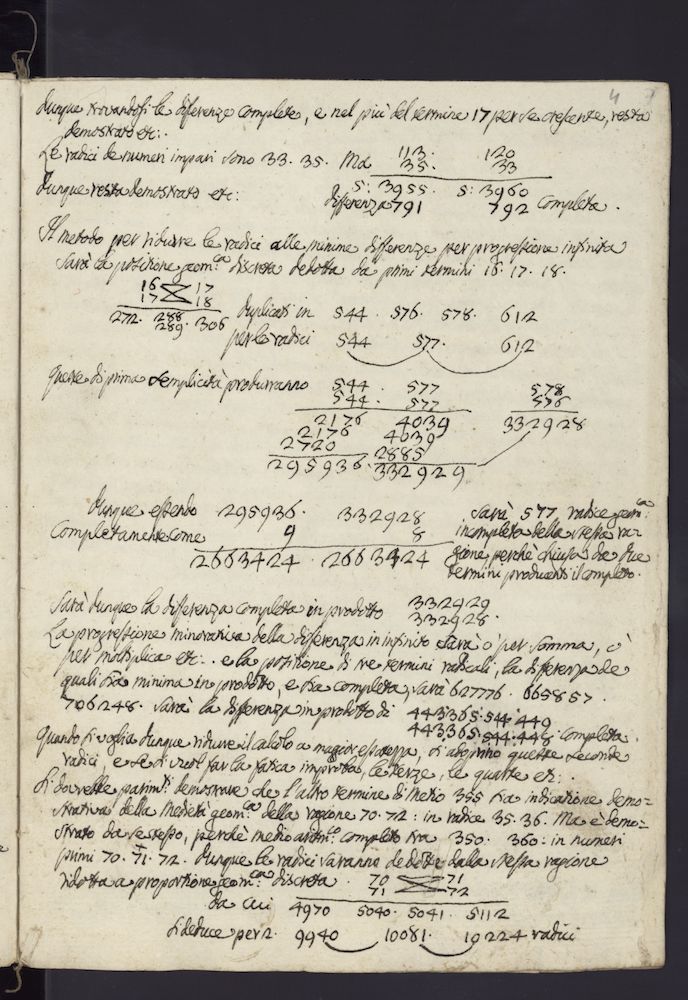 4
dunque trovandosi le diferenze complete, e nel più del termine 17 per se crescente, resta
demostrato etc:.
Le radici de numeri impari sono 33. 35. Ma 113. 120
35. 33
Dunque resta demostrato etc: S: 3955. S: 3960
differenza 791 792 Completa.
Il metodo per ridurre le radici alle minime differenze per progressione infinita
sarà la positione geom.ca discreta dedotta da primi termini 16. 17. 18.
16 17
17 18
272. 288 306 duplicati in 544. 576. 578. 612
289.
per le radici 544 577. 612
queste di prima semplicità produrranno 544. 577 578
544. 577 576
2176 4039 332928
2176 4039
2720 2885
295936. 332929
dunque essendo 295936. 332928 sarà 577 radice geom.ca
Completamente come 9 8 incompleta della stessa ra-
2663424. 2663424 gione perche chiusa da due
termini producenti il completo.
Sarà dunque la differenza completa in prodotto 332929
332928.
La progressione minorativa della diferenza in infinito sarà ò per somma, ò
per moltiplica etc:. e la positione di tre termini radicali, la differenza de
quali sia minima in prodotto, e sia completa, sarà 627776. 665857.
706248. sarà la differenza in prodotto di 443365.544.449
443365.544.448 completa.
Quando si voglia dunque ridurre il calcolo a maggior esatezza, si adoprino queste seconde
radici, e se si vuol far la fatica improba, le terze, le quarte etc:.
Si dovrebbe parim.ti demostrare che l'altro termine di mezo 355 sia indicatione demo=
strativa della Medietà geom.ca della ragione 70. 72: in radice 35. 36. Ma è demo=
strato da se stesso, perchè medio aritm.co completo tra 350. 360: in numeri
primi 70. 71. 72. Dunque le radici saranno dedotte dalla stessa ragione
ridotta a proportione geom.ca discreta. 70 71
71 72
da cui 4970 5040. 5041. 5112
si deduce per 2. 9940 10081. 10224 radici